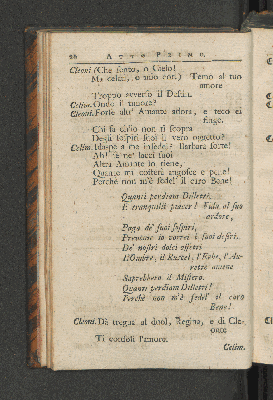 20 ATTO PRIMO.
Cleoni. (Che sento, o Cielo!
Ma celisi, o mio cor.) Temo al tuo
amore
Troppo avverso il Destin.
Celim. Onde il timore?
Cleoni. Forse altr' Amante adora, e teco si
finge.
Chi sa ch'io non ti scopra
Degli sospiri suoi il vero oggetto?
Celim. Idaspe a me infedel? Barbara sorte!
Ah! se ne' lacci suoi
Altra Amante lo tiene,
Quanto mi costerà angosce e pene!
Perchè non m'è fedel' il caro Bene!
Quanti perdiam Diletti,
E tranquilli piaceri! Fido al suo
ardore,
Pago de' suoi sospiri,
Premiare io vorrei i suoi desiri.
De' nostri dolci affetti
l'Ombre, il Ruscel, l'Erbe, l'Aurette
amene
Saprebbero il Mistero.
Quanti perdiam Diletti!
Perchè non m'è fedel' il caro
Bene!
Cleoni. Dà tregua al duol, Regina, e di Cleonte
Ti confidi l'amore.
Celim.